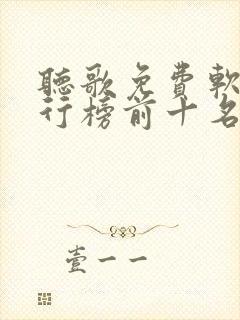 聽歌免費軟
行榜前十名
壹一一